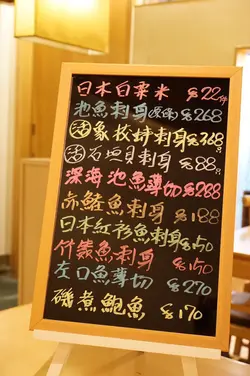 日本白粟米 $22/件
池魚刺身 $268
活象拔蚌刺身 $368
活石垣貝刺身 $88
深海池魚薄切 $288
赤鯥魚刺身 $188
日本紅衫魚刺身 $150
竹籤魚刺身 $150
左口魚薄切 $270
磯煮鮑魚 $170